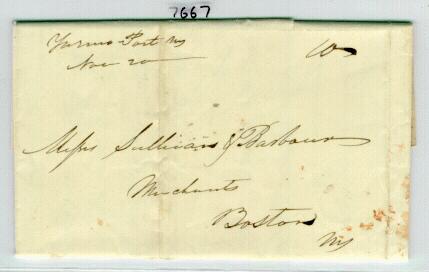 7667
Farms Port Ms
Nov 20
10
Messrs Sullivan & Barbour
Merchants
Boston
Ms